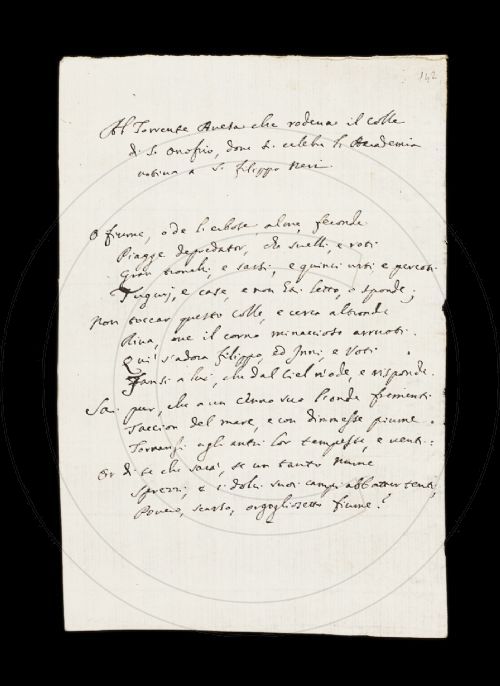 142
Al Torrente Avesa che rodeva il Colle
di S. Onofrio, dove si celebra l'Accademia
votiva a S. Filippo Neri.
O fiume, o de l'erbose, alme, feconde
Piagge depredator, che svelli, e roti
Gran tronchi, e sassi, e quinci urti e percoti
Tugurj, e case, e non hai letto, o sponde;
Non toccar questo Colle, e cerca altronde
Riva, ove il corno minaccioso arruoti.
Qui s'adora Filippo, ed Inni, e Voti
Fansi a lui, che dal Ciel n'ode, e risponde.
Sai pur, che a un cenno suo l'onde frementi
Taccion del mare, e con dimmesse piume
Tornansi agli antri lor tempeste, e venti:
Or di te che sarà, se un tanto Nume
Sprezzi, e i dolci suoi campi abbatter tenti,
Povero, scarso, orgogliosetto fiume?